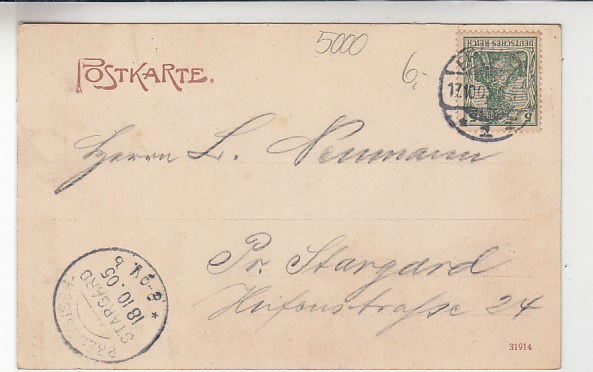 5000
6,-
POSTKARTE.
DEUTSCHES REICH
5
17.10.0
Herrn L. Neumann
Pr. Stargard
Hufenstraße 24
PREUSSISCH
STARGARD
18.10.05
8-9 V.
31914